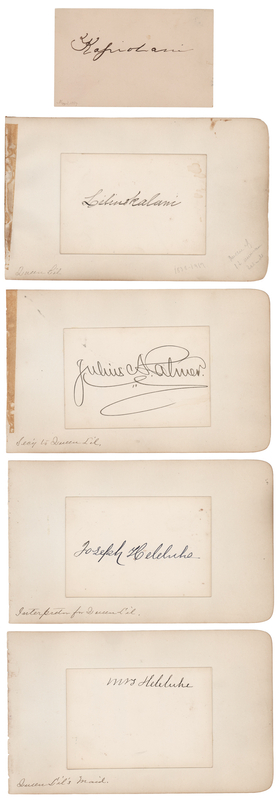 Kapiolani
Liliuokalani
Queen Lil
Julius A. Palmer.
Sec'y to Queen Lil.
Joseph Heleluhe
Interpreter for Queen Lil.
Mrs Heleluhe
Queen Lil's Maid.